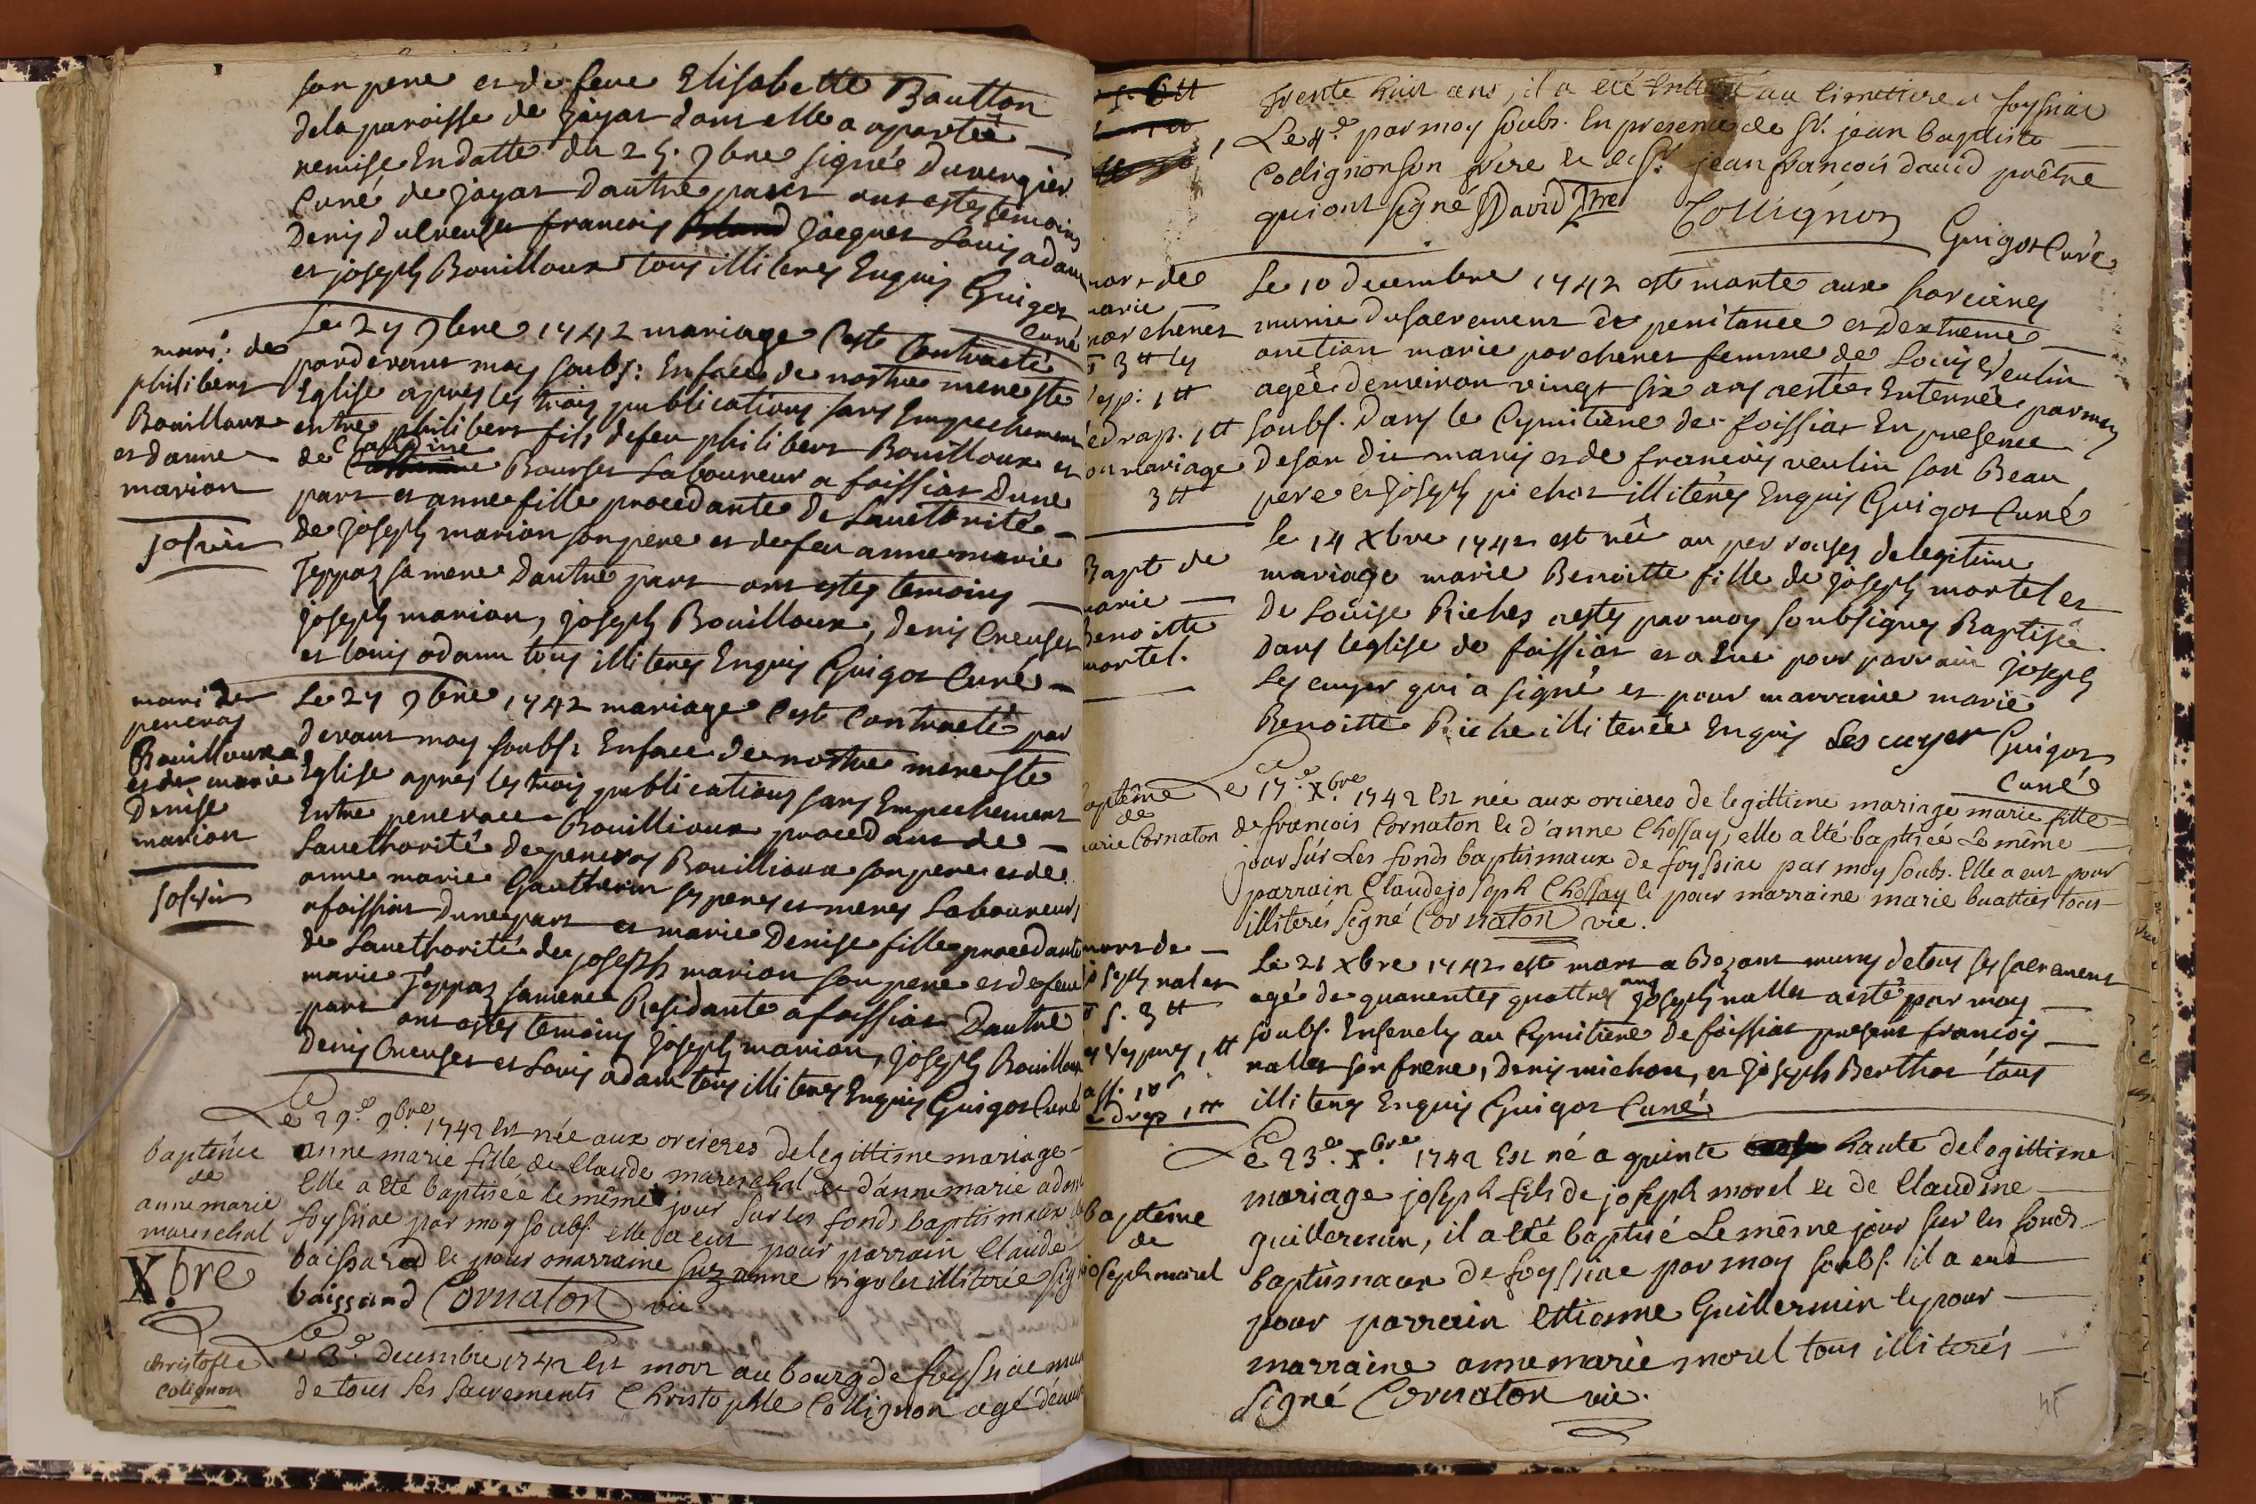 son pere et de feue Elisabette Boutton
de la paroisse de Jayat dont elle a aportée
remise En datte du 25. 9bre signée Duvergier
Curé de Jayat dautre part ont estes temoins
Denis Ducreuset francois Jacquet Louis adam
et joseph Bouilloux tous illiteres Enquis Guigot
Curé
mari: de
philibert
Bouilloux
et danne
marion
solvit
Le 27 9bre 1742 mariage C'est Contracté
pardevant moy soubs: En face de nostre mere Ste
Eglise apres les trois publications sans Empechement
entre philibert fils de feu philibert Bouilloux et
de Claudine Bourset Laboureur a foissiat Dune
part et anne fille procedante de Lauthorité
de joseph marion son pere et de feu anne marie
Teppaz sa mere Dautre part ont estes temoins
joseph marion, joseph Bouilloux, Denis Creuset
et louis adam tous illiteres Enquis Guigot Curé
mari de
peneras
Bouilloux
et de marie
Denise
marion
solvit
Le 27 9bre 1742 mariage C'est Contracté par
devant moy soubs: En face de nostre mere Ste
Eglise apres les trois publications sans Empechement
Entre Bouillioux procedant de
Lauethorité de peneras Bouillioux son pere et de
anne marie Gautherin ses peres et meres Laboureurs
a foissiat Dune part et marie Denise fille procedante
de Lauethorité de joseph marion son pere et de feue
marie Teppaz sa mere Residante a foissiat Dautre
part ont estes temoins joseph marion, joseph Bouilloux
Denis Creuset et Louis adam tous illiteres Enquis Guigot Curé
baptême
de
anne marie
mareschal
Le 29e. 9bre 1742 Est née aux orcieres de legittime mariage
anne marie fille de Claude mareschal & d'anne marie adam
Elle a été baptisée le même jour sur les fonds baptismaux de
foyssiac par moy soubs. elle a eut pour parrain Claude
baissard & pour marraine suzanne rigolet illiterée signé
baissard Cornaton vic.
X.bre
christofle
Colignon
Le 3e. decembre 1742 Est mort au bourg de foyssiac muni
de tous ses sacrements Christophle Collignon agé d'environ
trente huit ans, il a été Enterré au cimettiere de foyssiac
Le 4e. par moy soubs. En presence de Sr. jean baptiste
Collignon son frere & de Sr. jean francois david prêtre
qui ont signé David Ptre Collignon Guigot Curé
mort de
marie
porchenet
3tt
1tt
drap. 1tt
mariage
3tt
Le 10 decembre 1742 est morte aux horcieres
munie du sacrement de penitance et dextreme
onction marie porchenet femme de Louis Veulin
agée denviron vingt six ans a estée Enterrée par moy
soubs. Dans le Cymitiere de foissiat En presence
de son dit maris et de francois veulin son Beau
pere et joseph pichot illiteres Enquis Guigot Curé
Bapt de
marie
Benoitte
mortel.
Le 14 Xbre 1742 est née au perrouset de legitime
mariage marie Benoitte fille de joseph mortel et
de Louise Riches a estes par moy soubsignes Baptisée
Dans leglise de foissiat et a Eue pour parrain joseph
Lescuyer qui a signé et pour marraine marie
Benoitte Riche illiterée Enquis Lescuyer Guigot
Curé
baptême
de
marie Cornaton
Le 17e. X.bre 1742 Est née aux orcieres de legittime mariage marie fille
de francois Cornaton & d'anne Chossay, elle a été baptisée Le même
jour sur Les fonds baptismaux de foyssiac par moy soubs. Elle a eut pour
parrain Claude joseph Chossay & pour marraine marie buattier tous
illiterés signé Cornaton vic.
mort de
joseph nallet
3tt
1tt
drap 1tt
Le 21 Xbre 1742 est mort a Bezant munis de tous ses sacrement
agé de quarentes quattres ans joseph nallet a esté par moy
soubs. Ensevely au Cymitiere de foissiat present francois
nallet son frere, Denis michon, et joseph Berthot tous
illiteres Enquis Guigot Curé
baptême
de
joseph morel
Le 23e. X.bre 1742 Est né a quinte haute de legittime
mariage joseph fils de joseph morel & de Claudine
guillermin, il a été baptisé Le même jour sur les fonds
baptismaux de foyssiac par moy soubs. il a eut
pour parrain Ettienne Guillermin & pour
marraine anne marie morel tous illiterés
signé Cornaton vic.